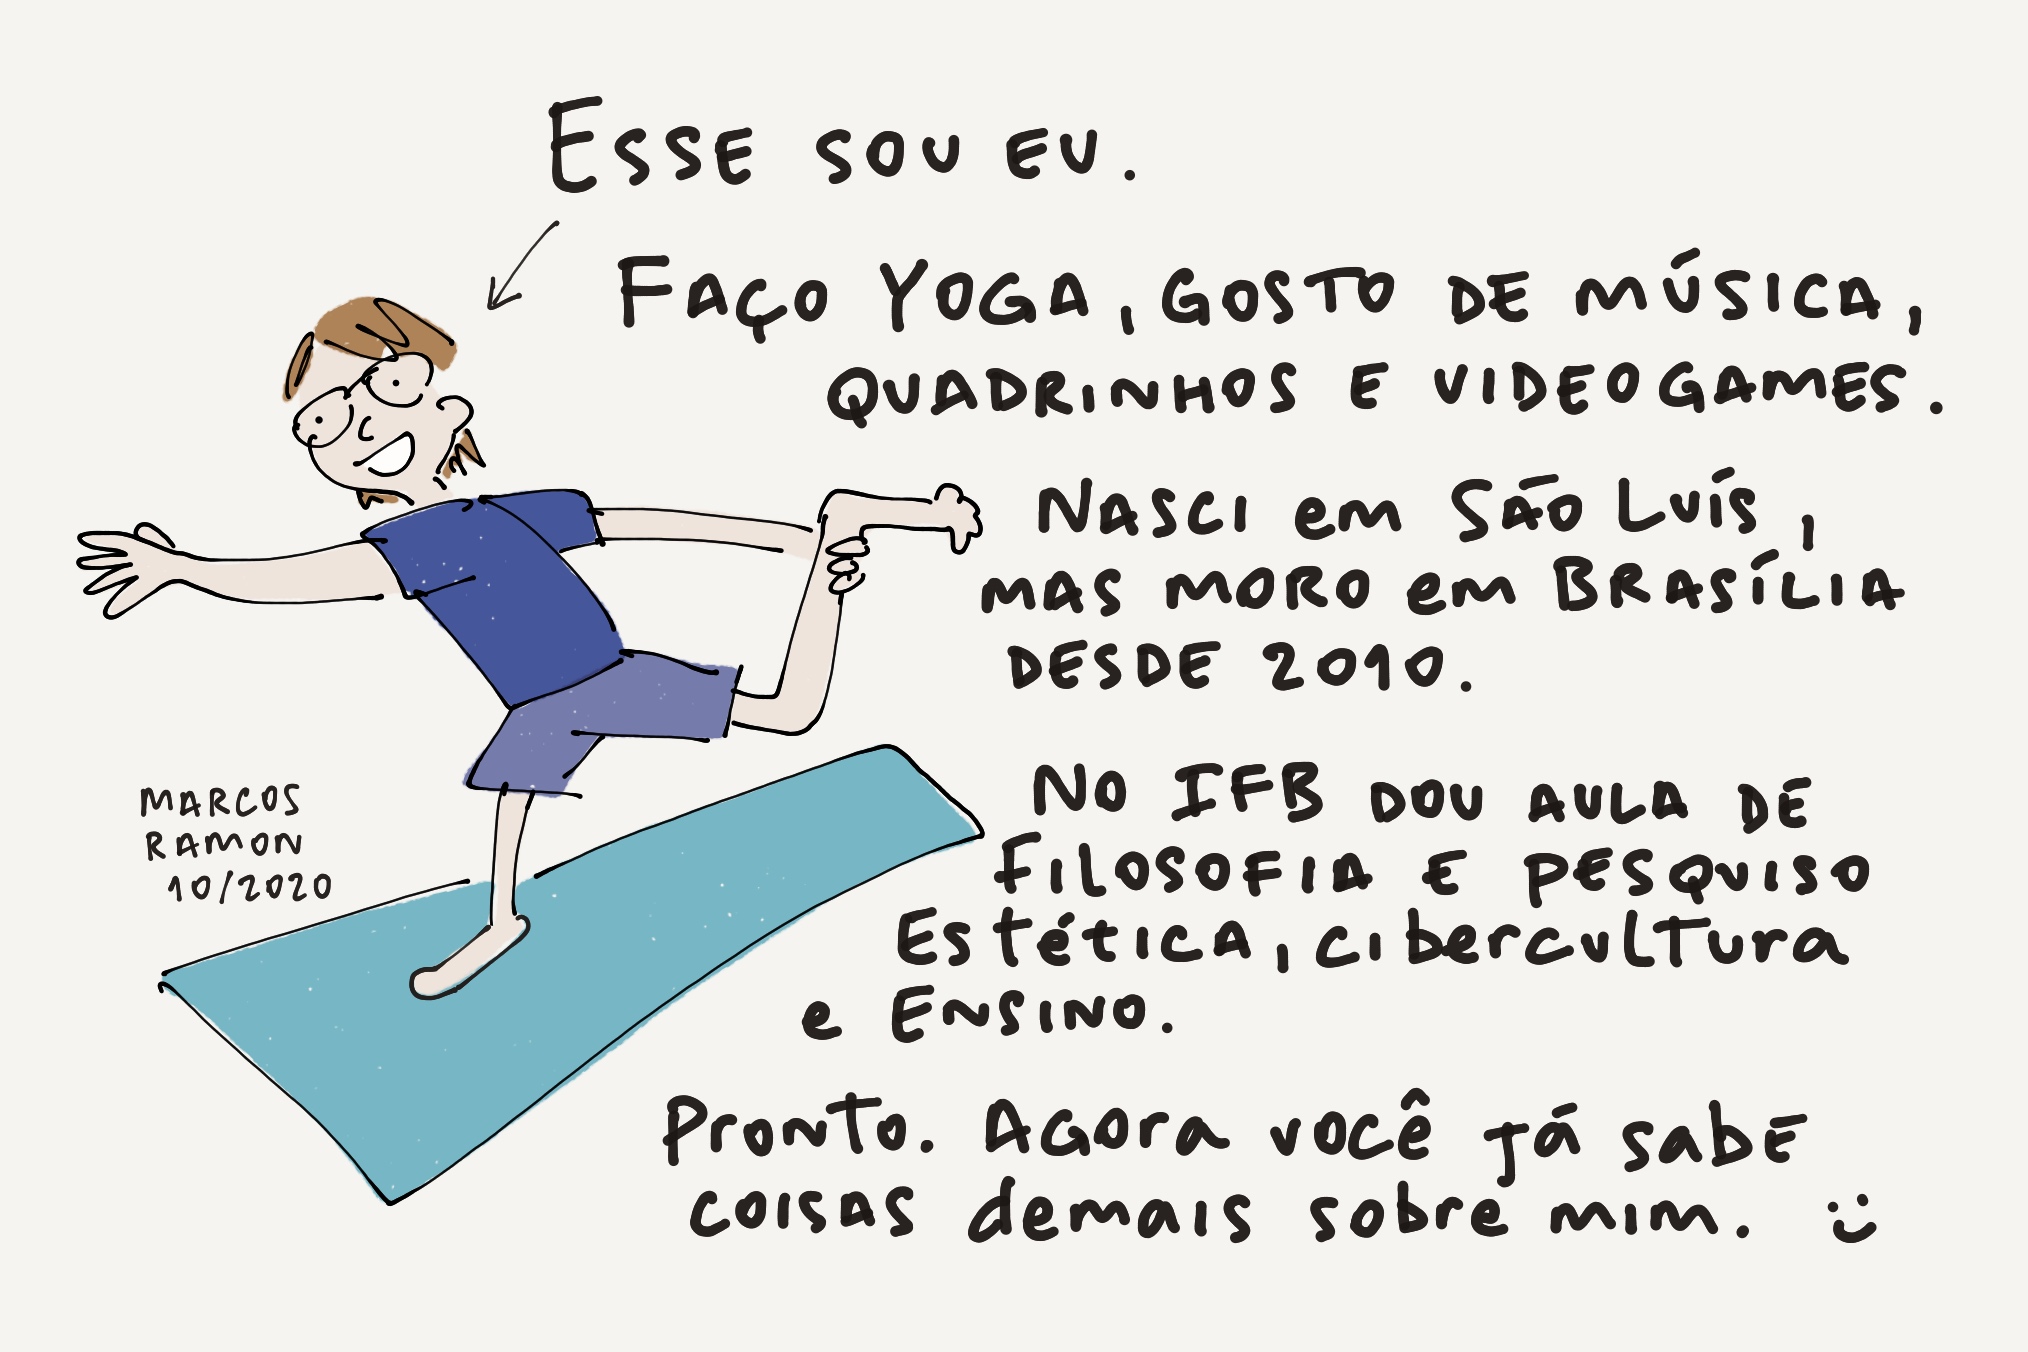 Esse sou eu.
Faço Yoga, gosto de música,
quadrinhos e videogames.
Nasci em São Luís,
mas moro em Brasília
desde 2010.
No IFB dou aula de
Filosofia e pesquiso
Estética, cibercultura
e Ensino.
Pronto. Agora você já sabe
coisas demais sobre mim. :)
Marcos
Ramon
10/2020